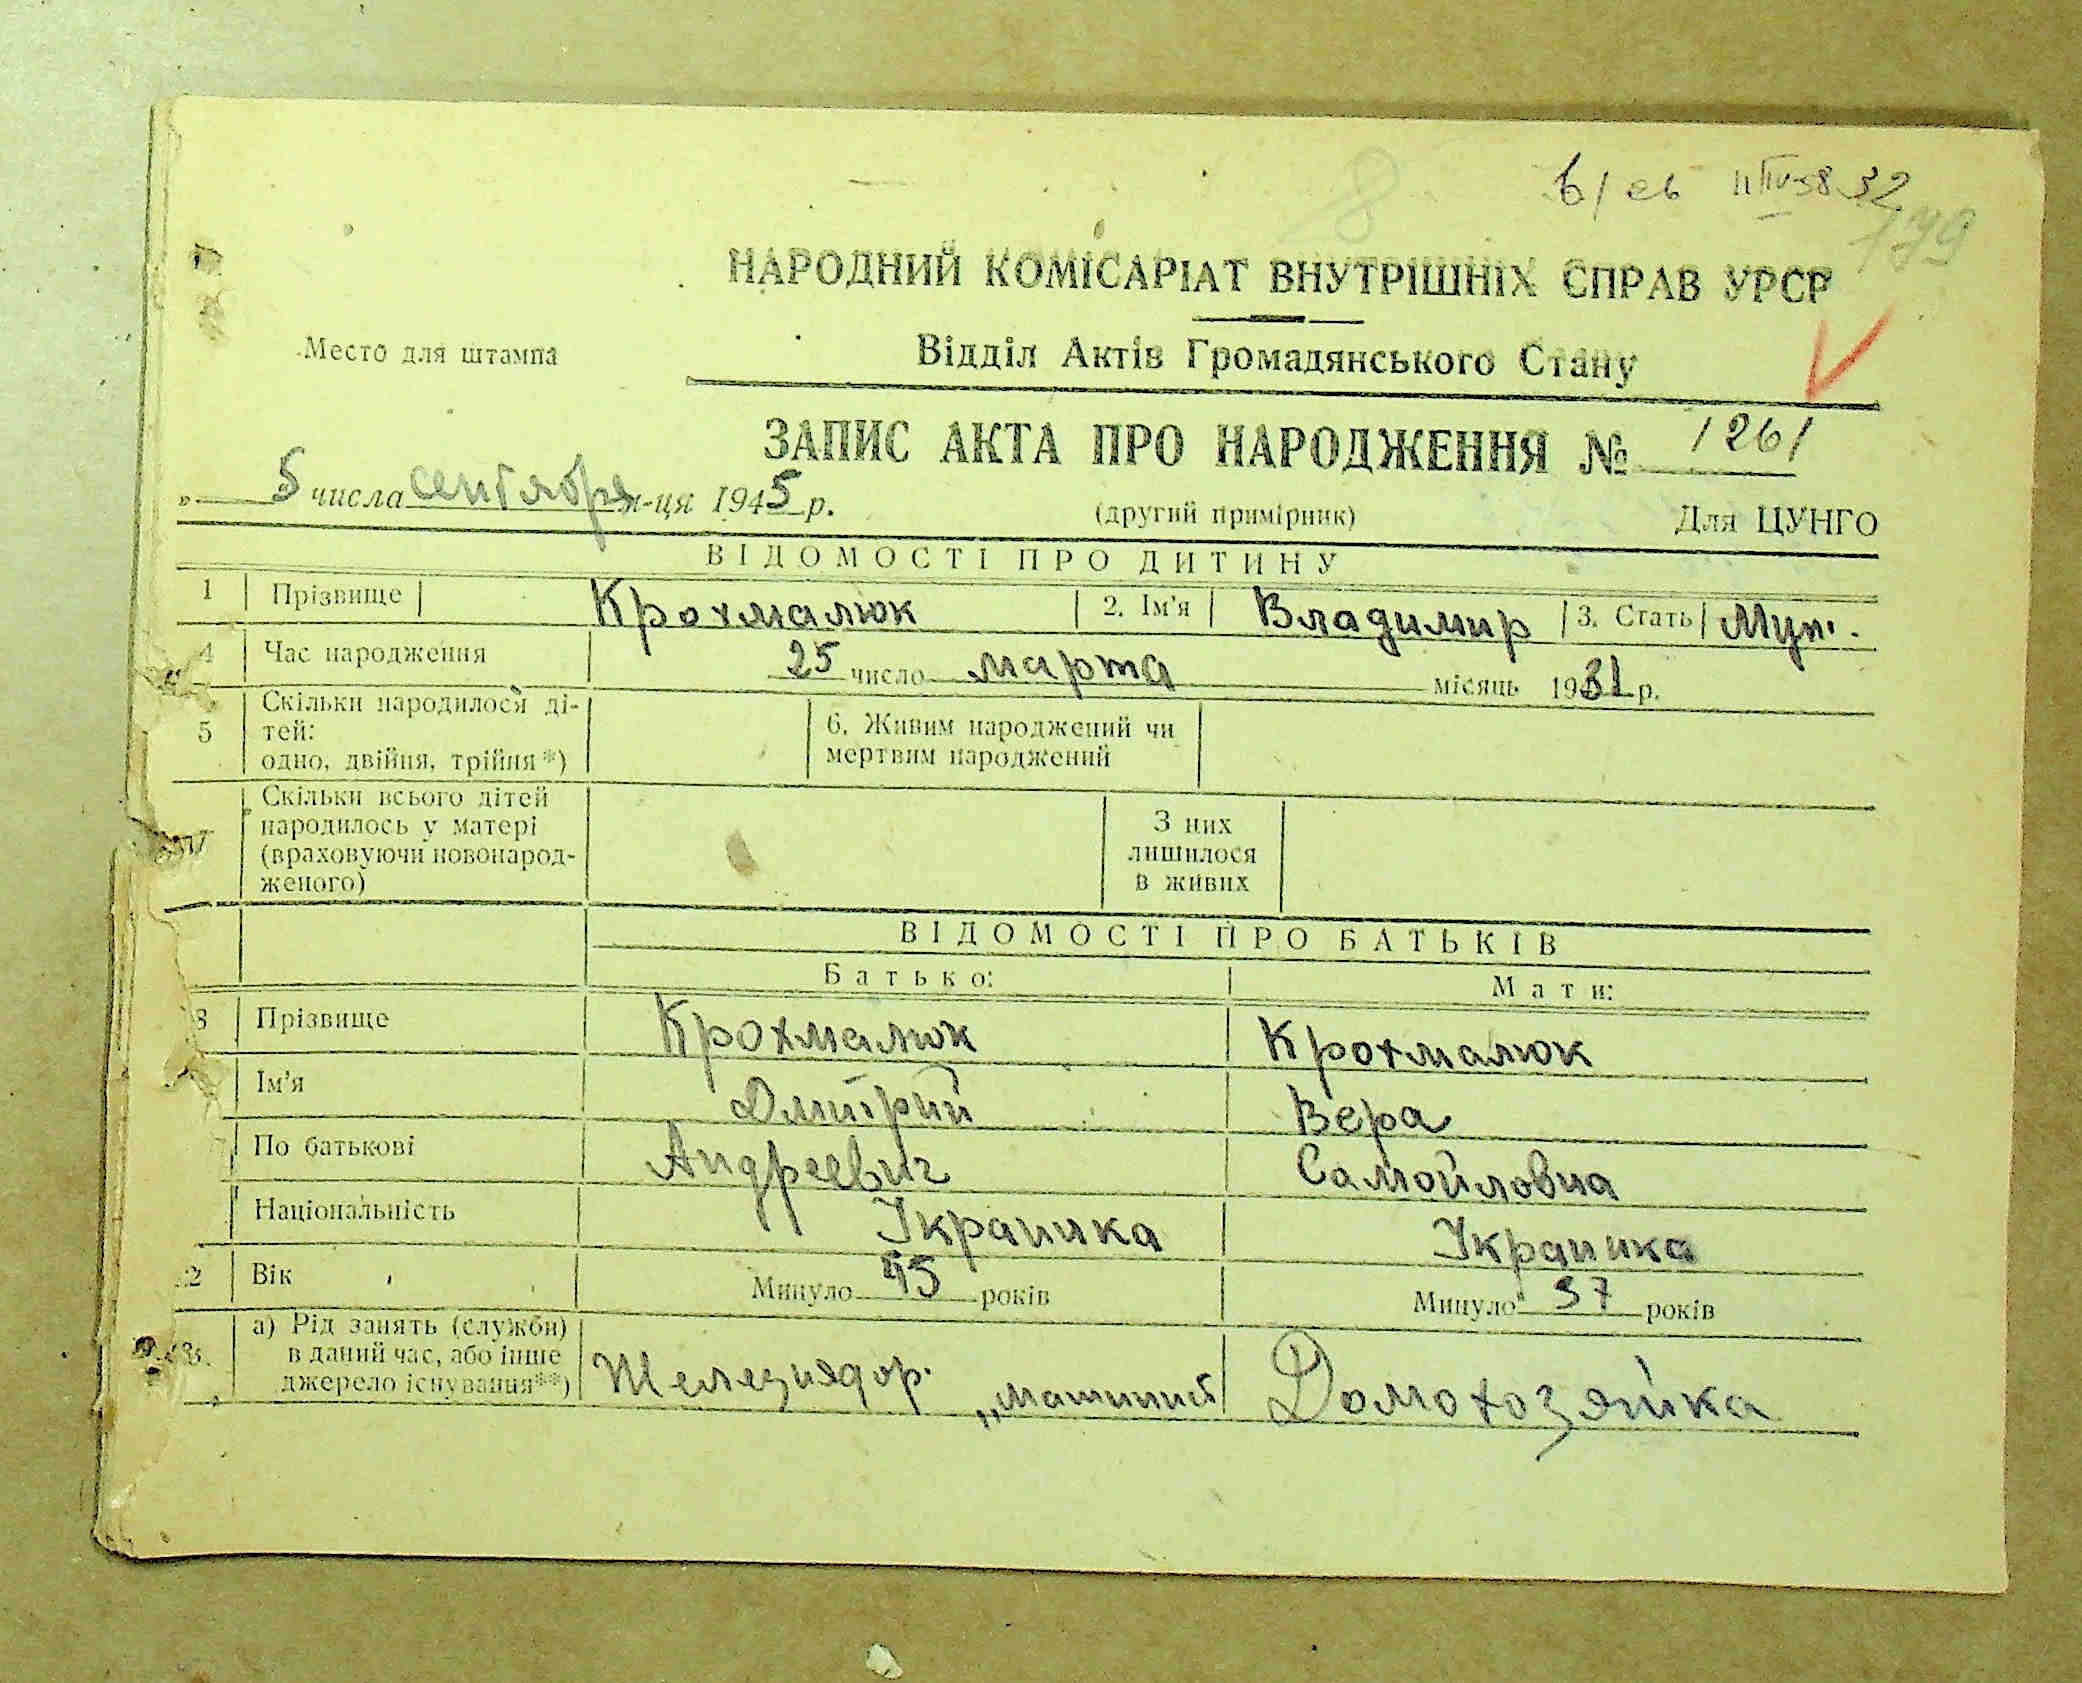 в/ев 11 IV-58 32
179
НАРОДНИЙ КОМІСАРІАТ ВНУТРІШНІХ СПРАВ УРСР
Место для штампа
Відділ Актів Громадянського Стану
ЗАПИС АКТА ПРО НАРОДЖЕННЯ № 1261
„ 5 числа сентября м-ця 1945 р.
(другий примірник) Для ЦУНГО
ВІДОМОСТІ ПРО ДИТИНУ
1 Прізвище Крохмалюк 2. Ім'я Владимир 3. Стать Муж.
4 Час народження 25 число марта місяць 1931 р.
Скільки народилося ді-
5 тей: 6. Живим народжений чи
одно, двійня, трійня*) мертвим народжений
Скільки всього дітей
народилось у матері З них
(враховуючи новонарод- лишилося
женого) в живих
ВІДОМОСТІ ПРО БАТЬКІВ
Батько: Мати:
8 Прізвище Крохмалюк Крохмалюк
Ім'я Дмитрий Вера
По батькові Андреевич Самойловна
Національність Украинка Украинка
2 Вік Минуло 45 років Минуло 37 років
а) Рід занять (служби)
в даний час, або інше
джерело існування**) Железнодор. „машинист Домохозяйка